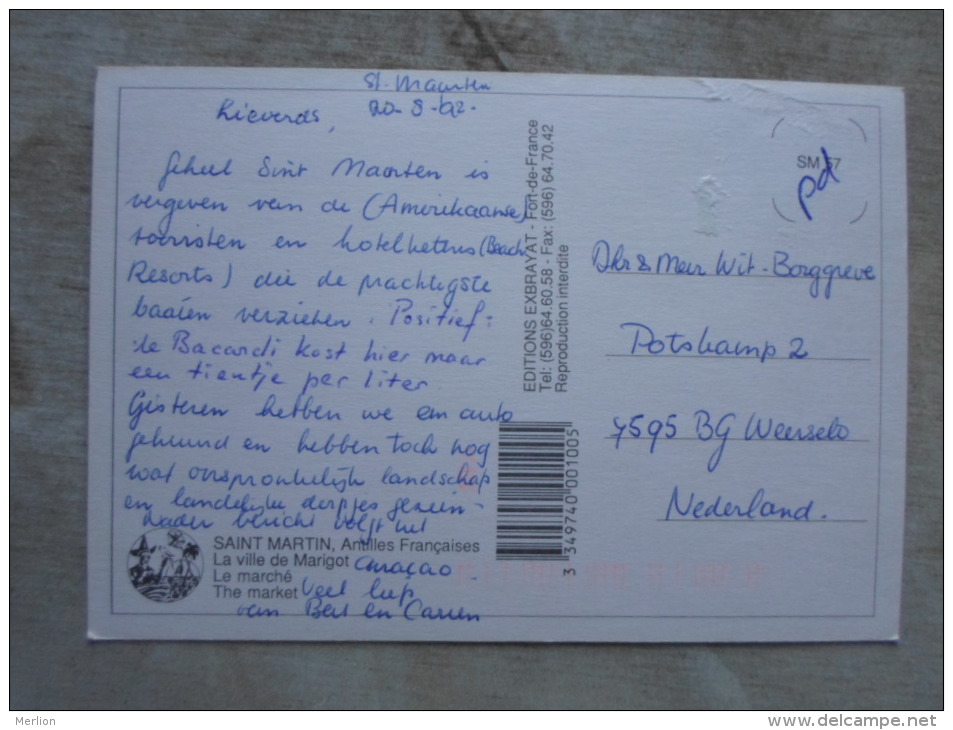 St. Maarten
20-8-92.
Lieverds,
Geheel Sint Maarten is
vergeven van de (Amerikaanse)
toeristen en hotelketens (Beach
Resorts) die de prachtigste
baaien verzieken. Positief:
de Bacardi kost hier maar
een tientje per liter.
Gisteren hebben we een auto
gehuurd en hebben toch nog
wat onspronkelijk landschap
en landelijke dorpjes gezien.
Nader bericht volgt uit
Curaçao.
Veel liefs
van Bert en Carien
SAINT MARTIN, Antilles Françaises
La ville de Marigot
Le marché
The market
EDITIONS EXBRAYAT - Fort-de-France
Tel: (596) 64.60.58 - Fax: (596) 64.70.42
Reproduction interdite
3 349740 001005
SM 57
pd
Dhr & Mevr Wit-Borggreve
Potskamp 2
7595 BG Weerselo
Nederland.
Merlion
www.delcampe.net